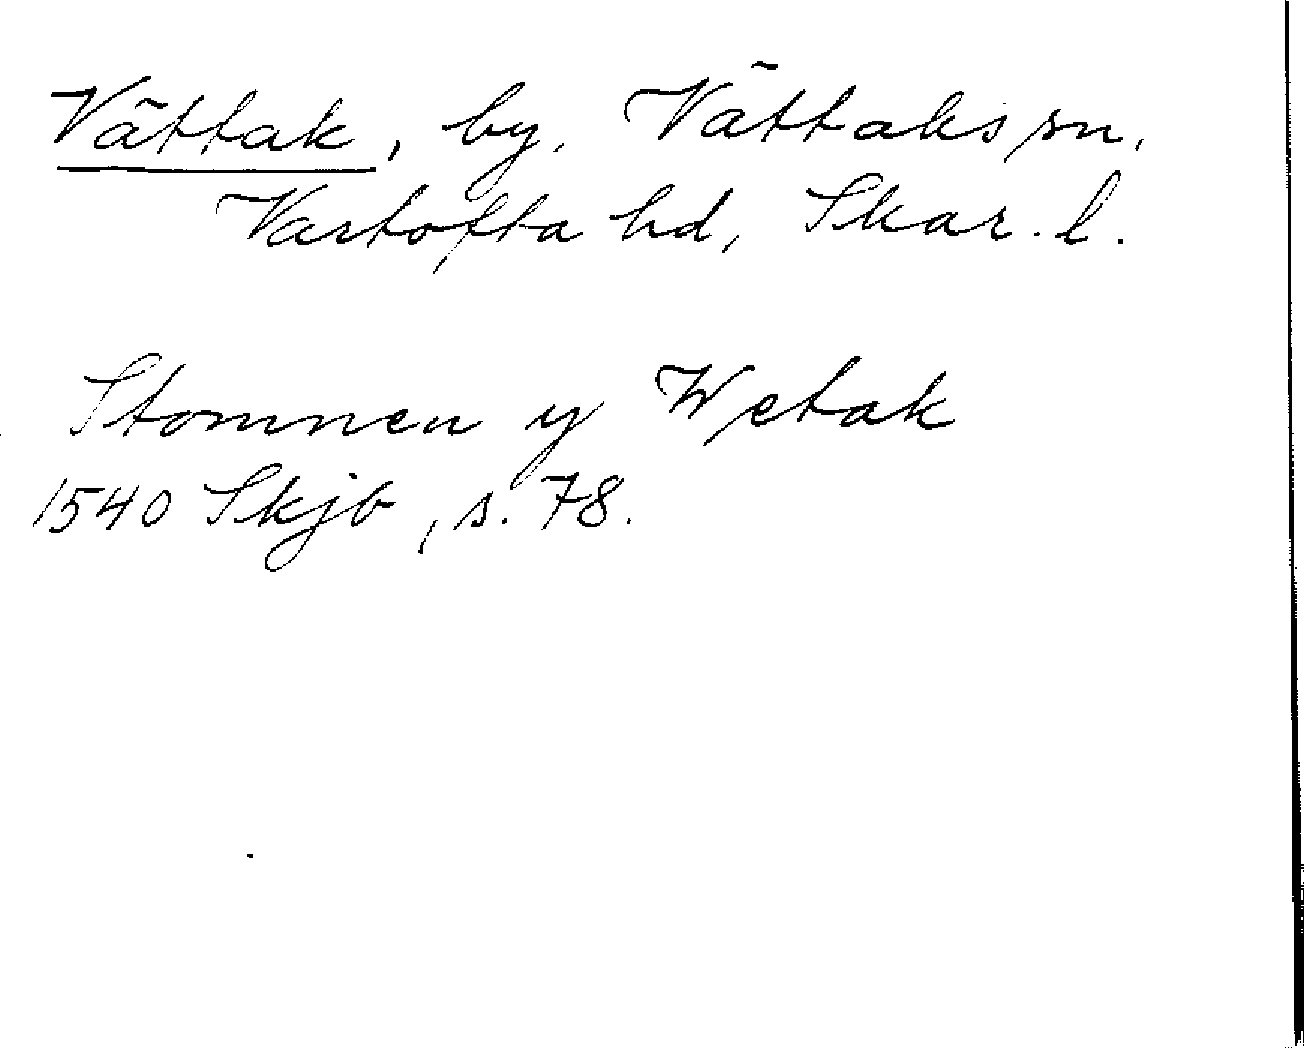 Vättak, by, Vättaks sn,
Vartofta hd, Skar. l.
Stomnen y Wetak
1540 Skjb, s. 78.